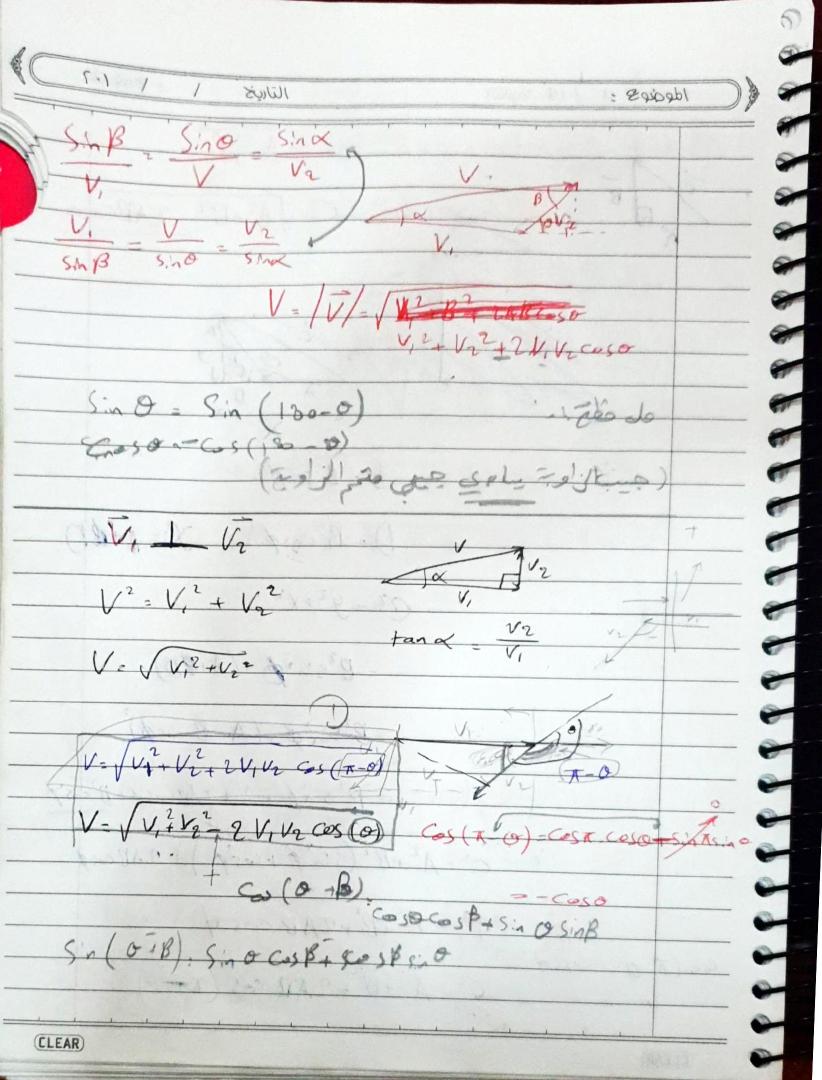 الموضوع : التاريخ / / ٢٠١
Sinβ/V₁ = Sinθ/V = Sinα/V₂
V₁/Sinβ = V/Sinθ = V₂/Sinα
V
α
β
V₁
V₂
V = |V⃗| = √
V₁² + V₂² + 2V₁V₂ cosθ
Sin θ = Sin (180-θ)
(جيب الزاوية يساوي جيب متمم الزاوية)
V⃗₁ ⊥ V⃗₂
V
V₂
α
V₁
V² = V₁² + V₂²
tan α = V₂/V₁
V = √V₁² + V₂²
①
V = √V₁² + V₂² + 2V₁V₂ cos(π-θ)
V₁
θ
π-θ
V₂
V = √V₁² + V₂² - 2V₁V₂ cos(θ)
Cos(π-θ) = Cosπ.cosθ + sinπ sinθ
0
= -Cosθ
Cos(θ + β) =
CosθCosβ + Sin θ Sinβ
Sin(θ β) = Sinθ Cosβ + Cosβ sinθ
CLEAR